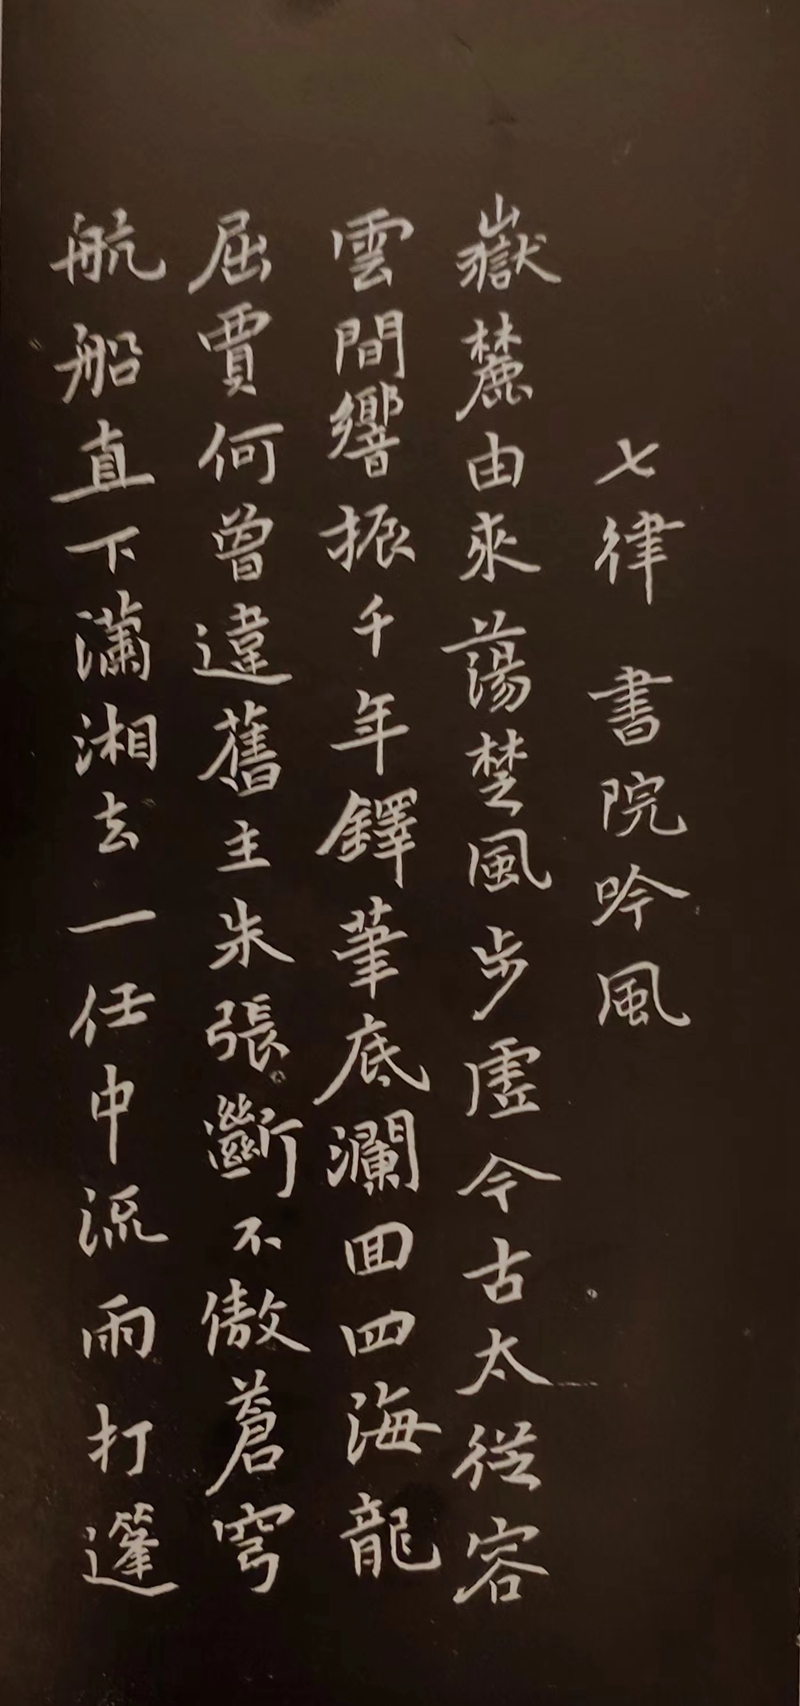 七律 書院吟風
嶽麓由來蕩楚風步虛今古太從容
雲間響振千年鐸筆底瀾回四海龍
屈賈何曾違舊主朱張斷不傲蒼穹
航船直下瀟湘去一任中流雨打篷